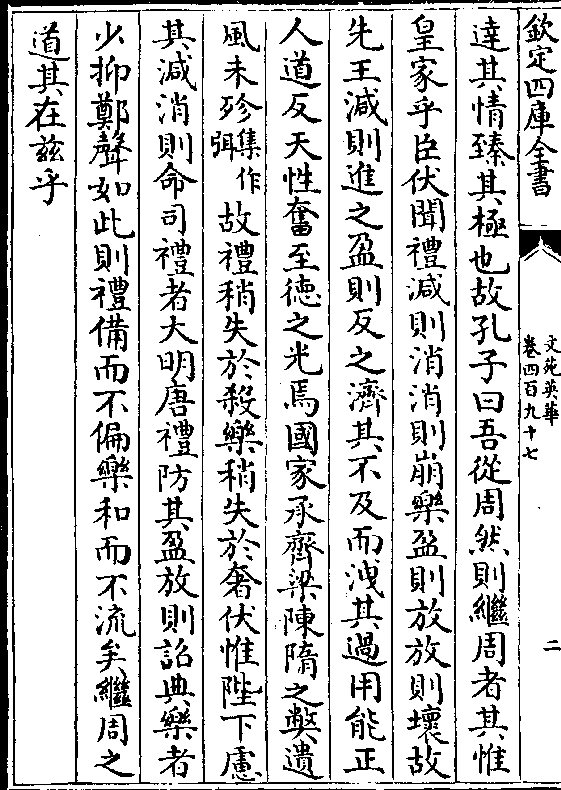 欽定四庫全書
文苑英華
卷四百九十七
二
達其情臻其極也故孔子曰吾從周然則繼周者其惟
皇家乎臣伏聞禮減則消消則崩樂盈則放放則壞故
先王減則進之盈則反之濟其不及而洩其過用能正
人道反天性奮至德之光焉國家承齊梁陳隋之弊遺
風未殄集作弭故禮稍失於殺樂稍失於奢伏惟陛下慮
其減消則命司禮者大明唐禮防其盈放則詔典樂者
少抑鄭聲如此則禮備而不偏樂和而不流矣繼周之
道其在茲乎